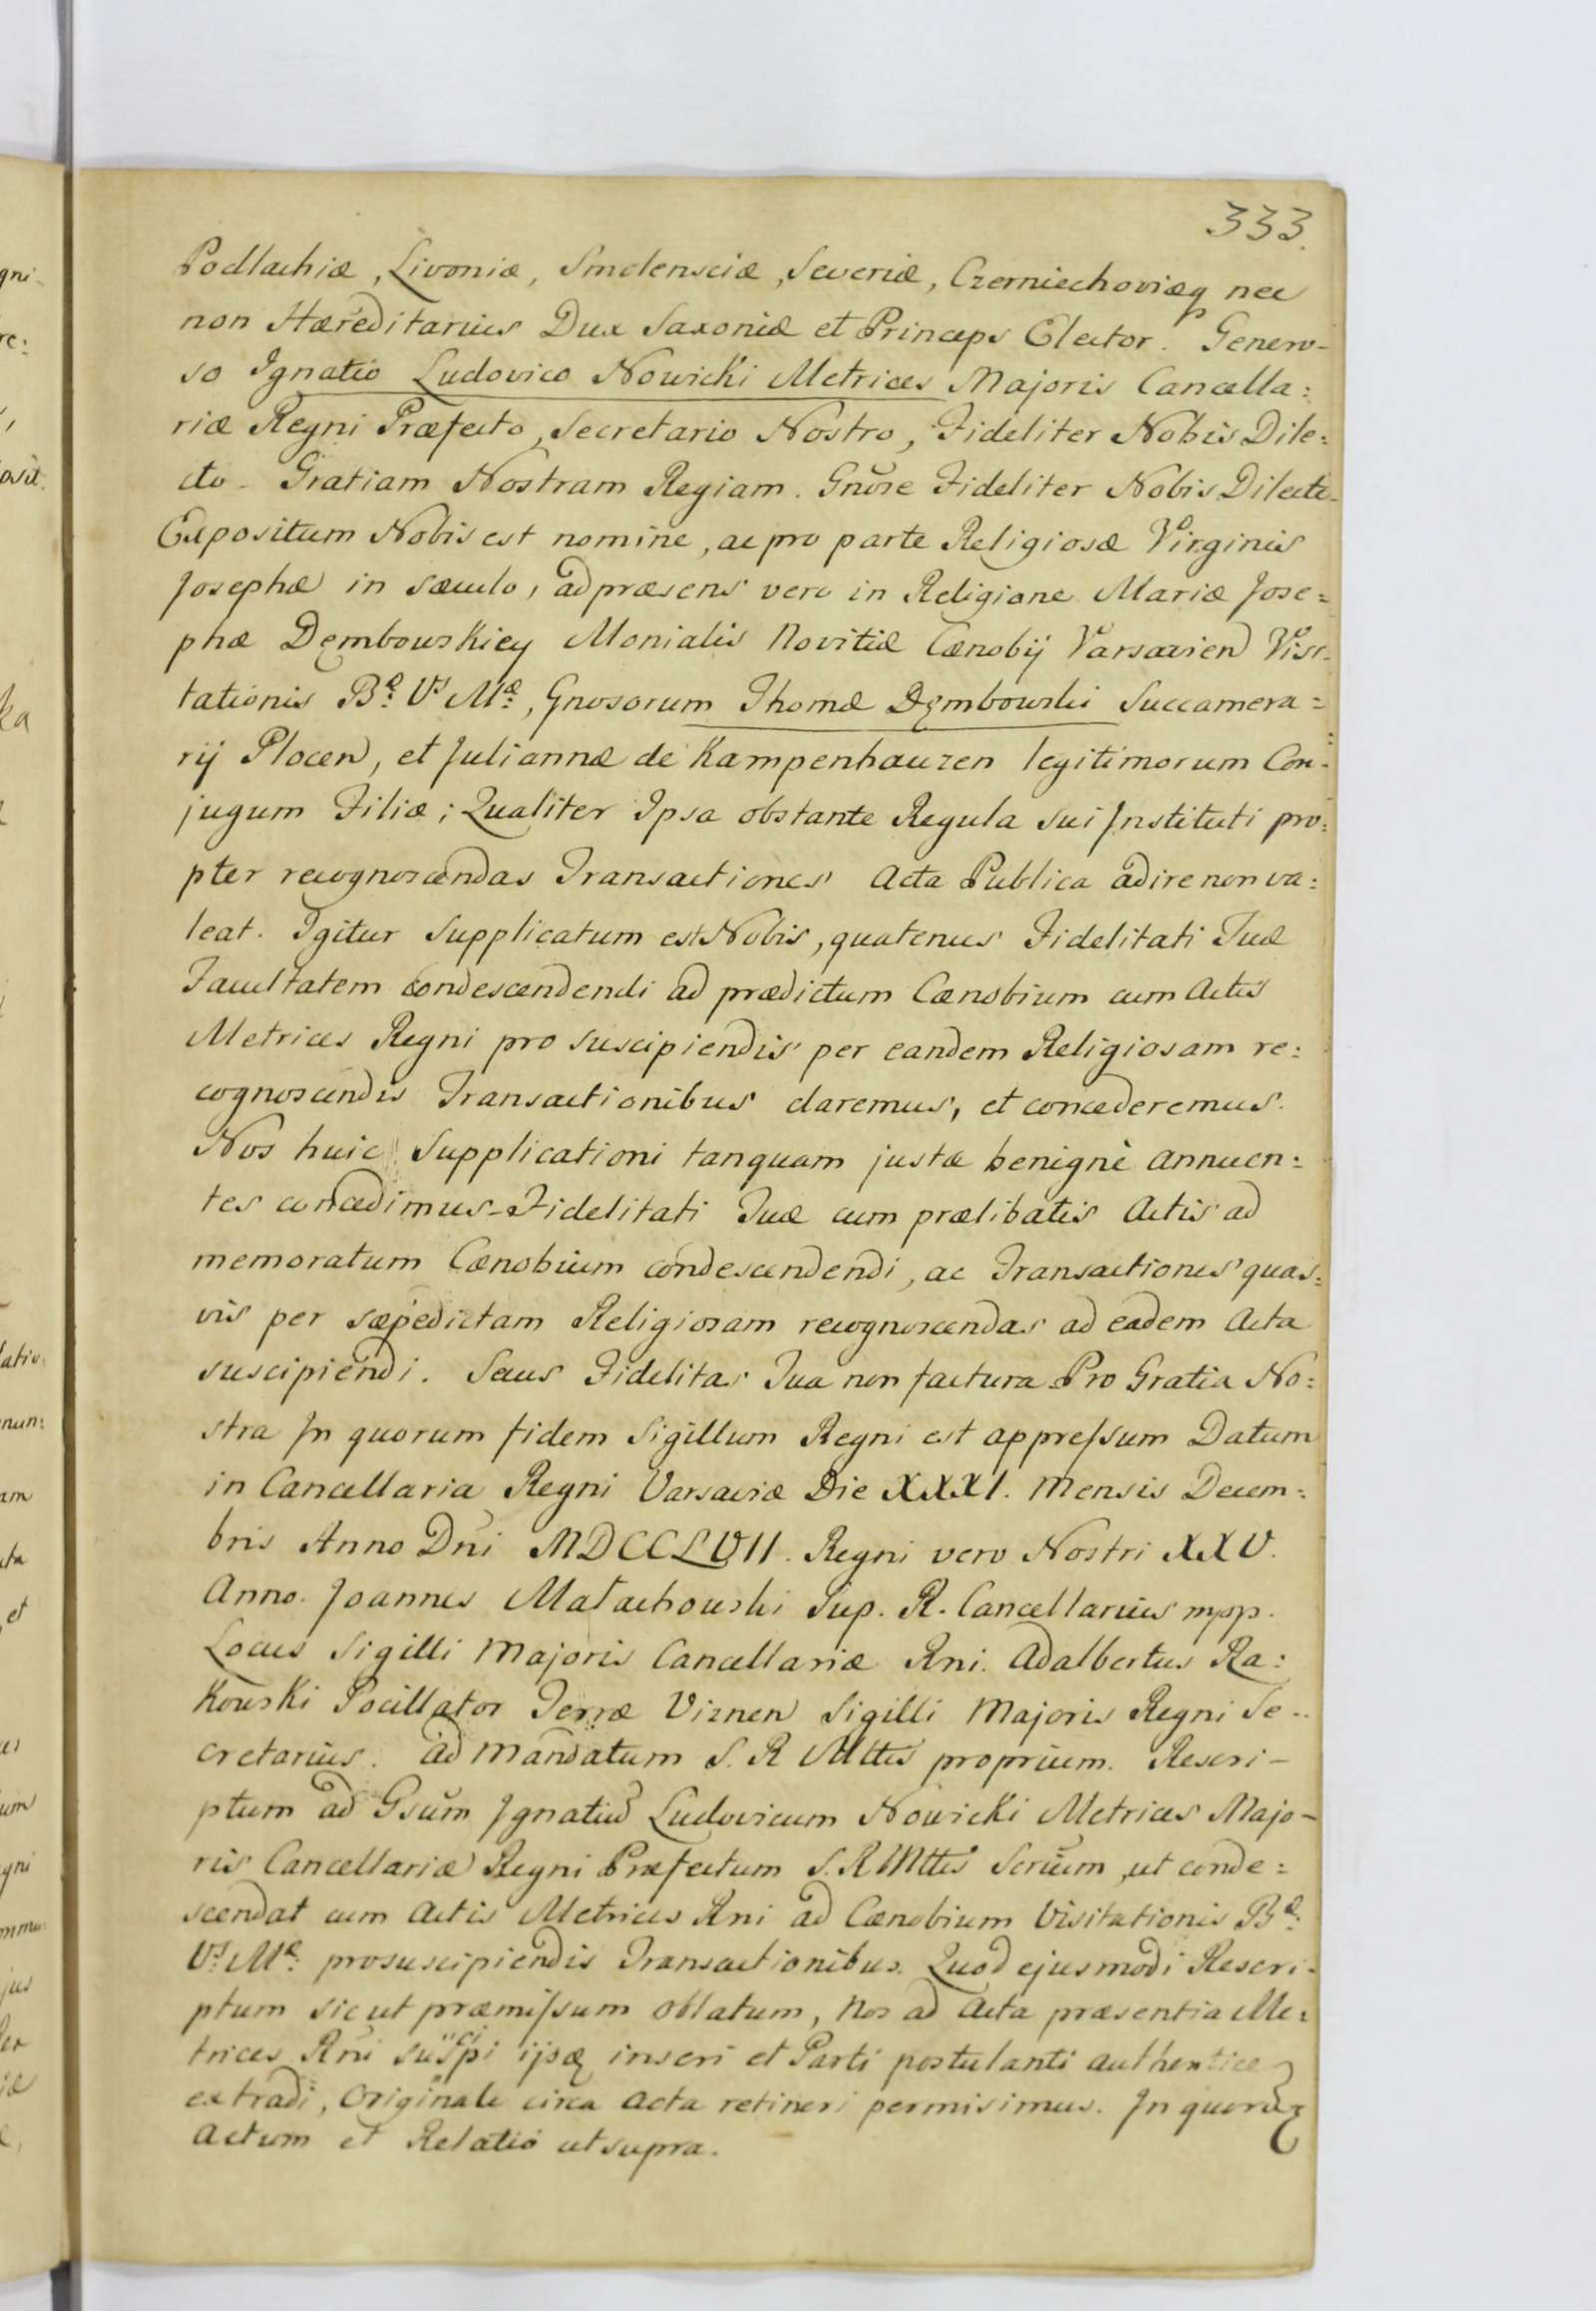 333.
Podlachiæ, Livoniæ, Smolensciæ, Severiæ, Czerniechoviæq nec
non Hæreditarius Dux Saxoniæ et Princeps Elector. Genero-
so Ignatio Ludovico Nowicki Metrices Majoris Cancella:
riæ Regni Præfecto, Secretario Nostro, Fideliter Nobis Dile:
cto. Gratiam Nostram Regiam. Gnōse Fideliter Nobis Dilecte.
Expositum Nobis est nomine, ac pro parte Religiosæ Virginis
Josephæ in sæculo, ad præsens vero in Religione Mariæ Jose:
phæ Dębowskiey Monialis Novitiæ Cænobij Varsavien Visi-
tationis Bæ: Vs Mæ:, Gnosorum Thomæ Dęmbowski Succamera:
rij Plocen, et Juliannæ de Kampenhauzen legitimorum Con:
jugum Filiæ; Qualiter Ipsa obstante Regula sui Instituti pro:
pter recognoscendas Transactiones Acta Publica adire non va:
leat. Igitur Supplicatum est Nobis, quatenus Fidelitati Tuæ
Facultatem condescendendi ad prædictum Cænobium cum Actis
Metrices Regni pro suscipiendis per eandem Religiosam re:
cognoscendis Transactionibus daremus, et concederemus.
Nos huic Supplicationi tanquam justæ benignè annuen:
tes concedimus Fidelitati Tuæ cum prælibatis Actis ad
memoratum Cænobium condescendendi, ac Transactiones quas:
vis per sæpedictam Religiosam recognoscendas ad eadem Acta
suscipiendi. Secus Fidelitas Tua non factura Pro Gratia No:
stra In quorum fidem Sigillum Regni est appressum Datum
in Cancellaria Regni Varsaviæ Die XXXI. Mensis Decem:
bris Anno Dni MDCCLVII. Regni vero Nostri XXV.
Anno. Joannes Małachowski Sup. R. Cancellarius mpp.
Locus Sigilli Majoris Cancellariæ Rni. Adalbertus Ra:
kowski Pocillator Terræ Viznen Sigilli Majoris Regni Se-
cretarius. Ad Mandatum S. R Mttis proprium. Rescri-
ptum ad Gsum Ignatiu Ludovicum Nowicki Metrices Majo-
ris Cancellariæ Regni Præfectum S. R Mttis Scrium, ut conde:
scendat cum Actis Metrices Rni ad Cænobium Visitationis Bæ:
Vs: Mæ: pro suscipiendis Transactionibus. Quod ejusmodi Rescri:
ptum sicut præmissum oblatum, Nos ad Acta præsentia Me:
trices Rni suscipi ijsq inseri et Parti postulanti authentice
extradi, Originale circa Acta retineri permisimus. In quoru
Actum et Relatio ut supra.